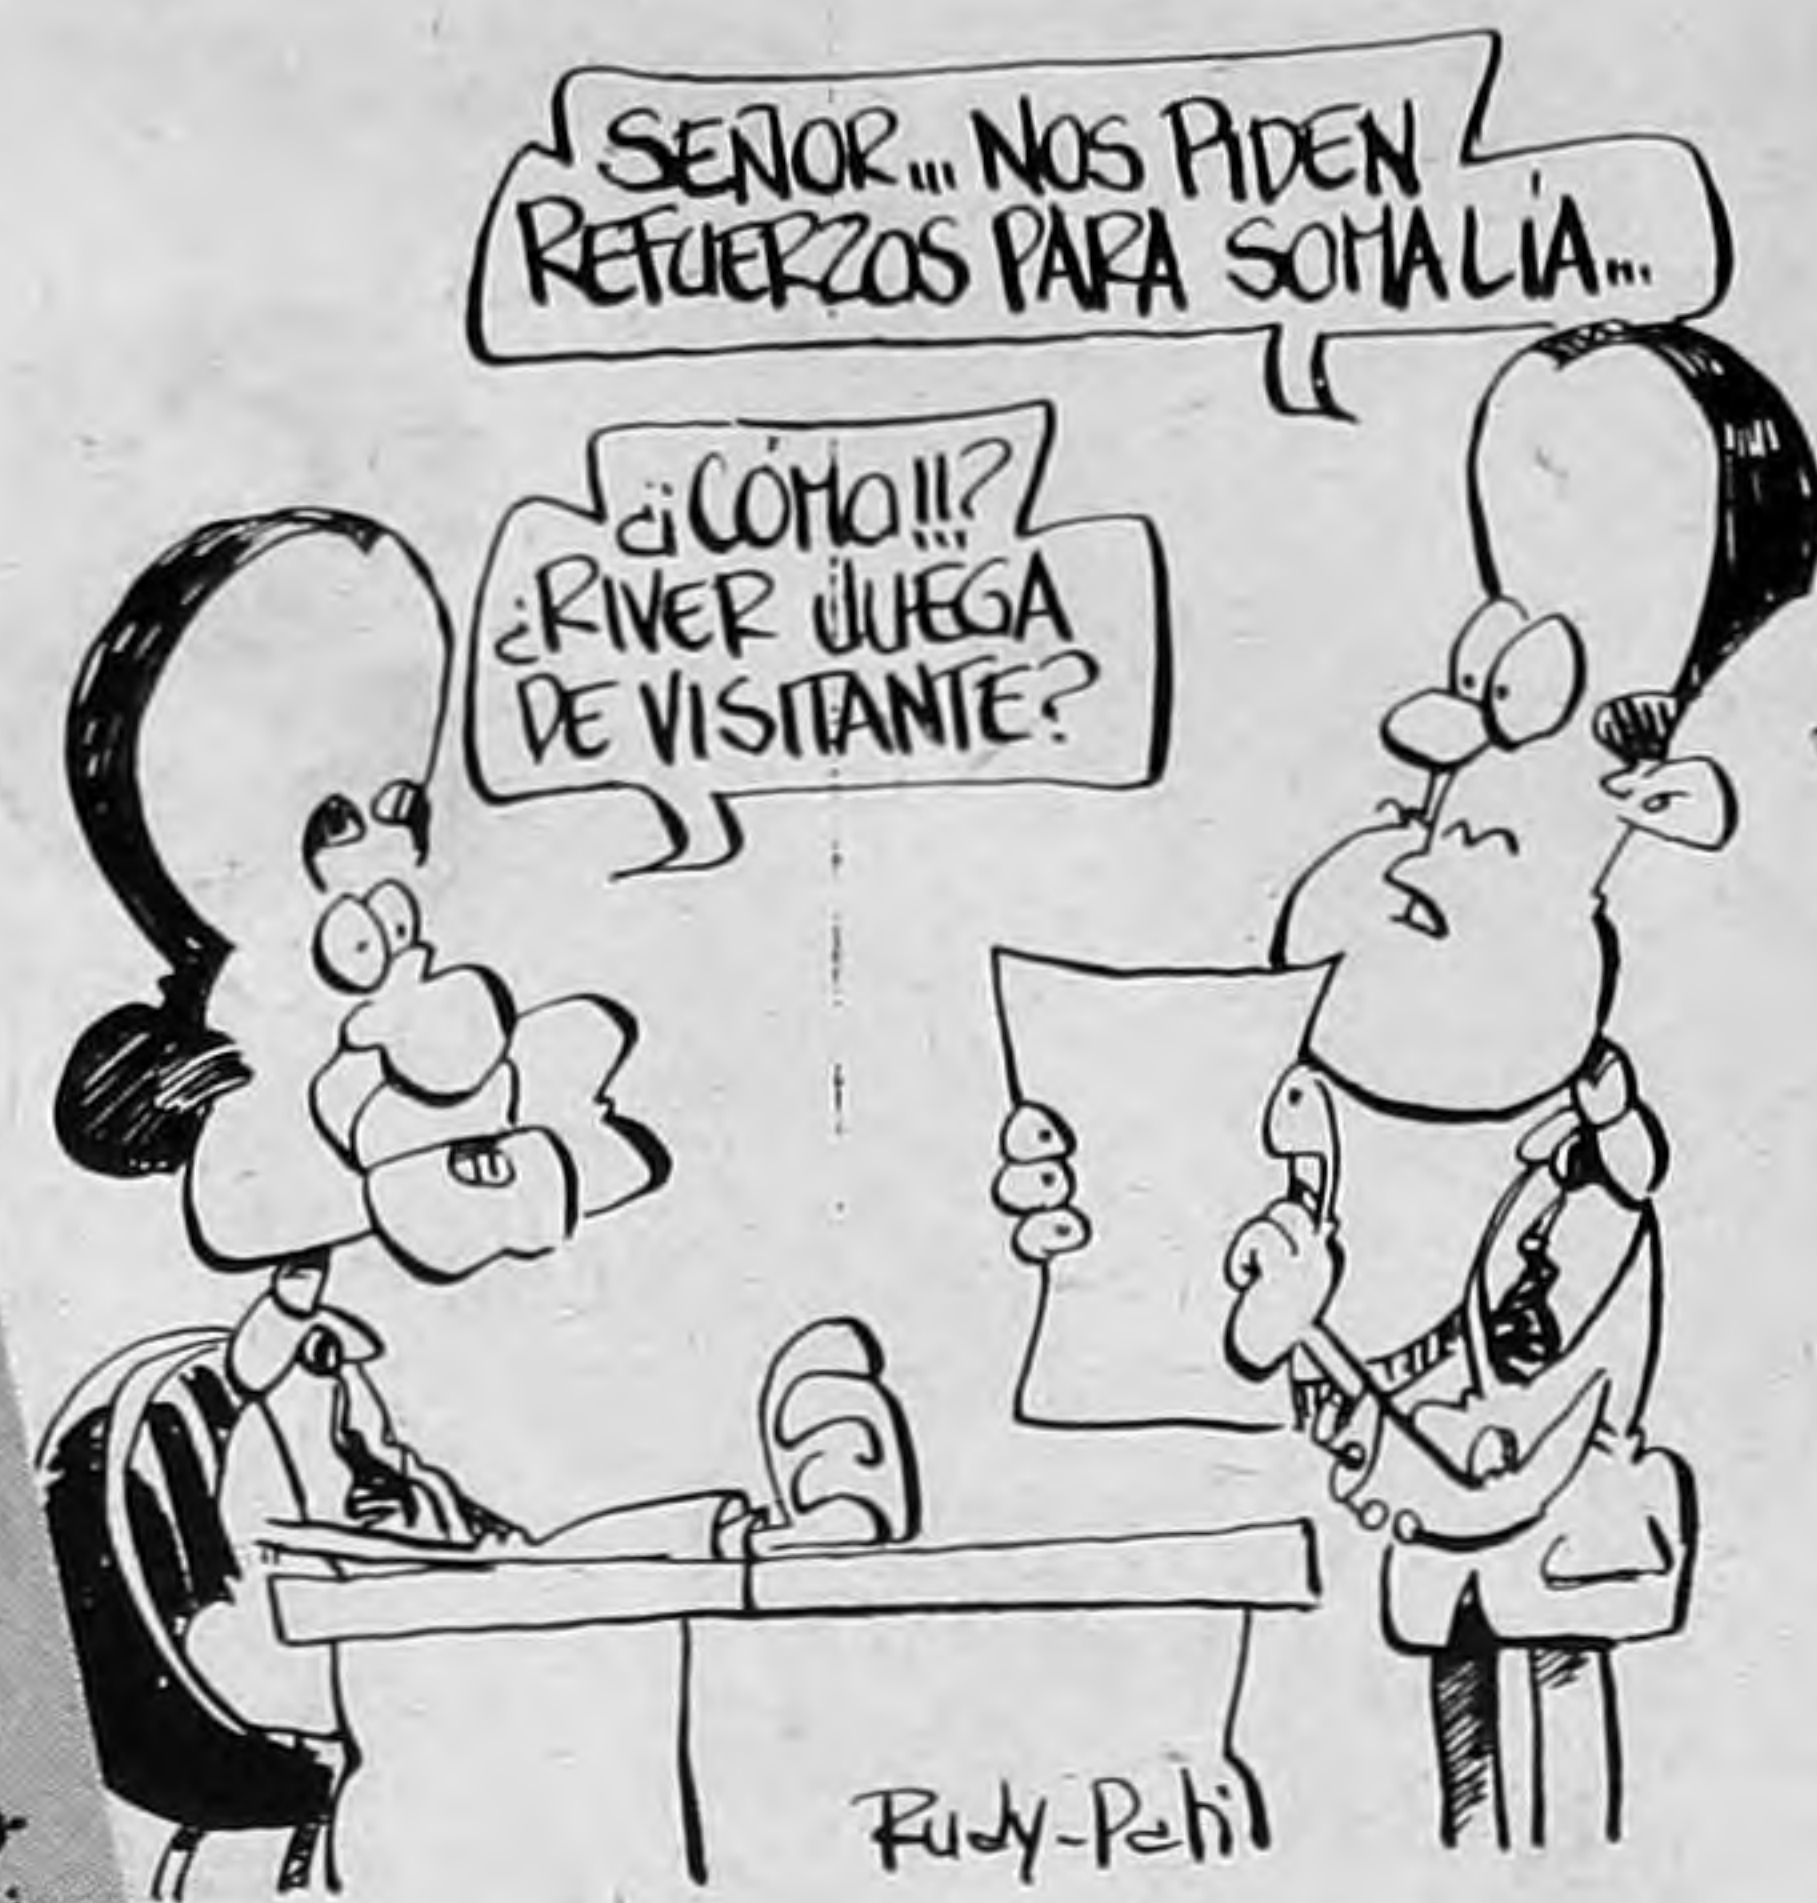 SEÑOR... NOS PIDEN
REFUERZOS PARA SOMALÍA...
¿¡CÓMO!!?
¿RIVER JUEGA
DE VISITANTE?
Rudy-Pati